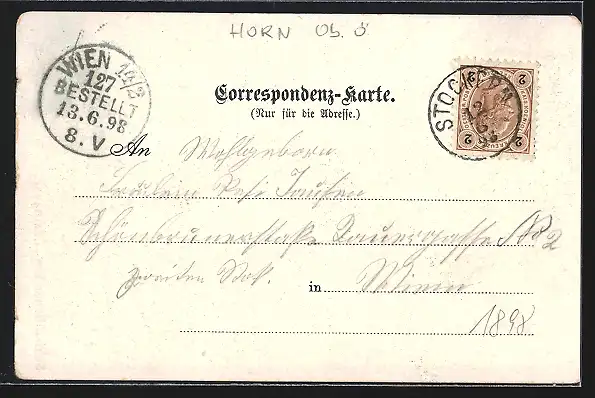 HORN OB. Ö
WIEN 14/2
127
BESTELLT
13.6.98
8. V
Correspondenz-Karte.
(Nur für die Adresse.)
2 2
2 2
STOCKERN
An Wohlgeborn
Fräulein Resi
No 2
zweiten Stok.
in Wien
1898